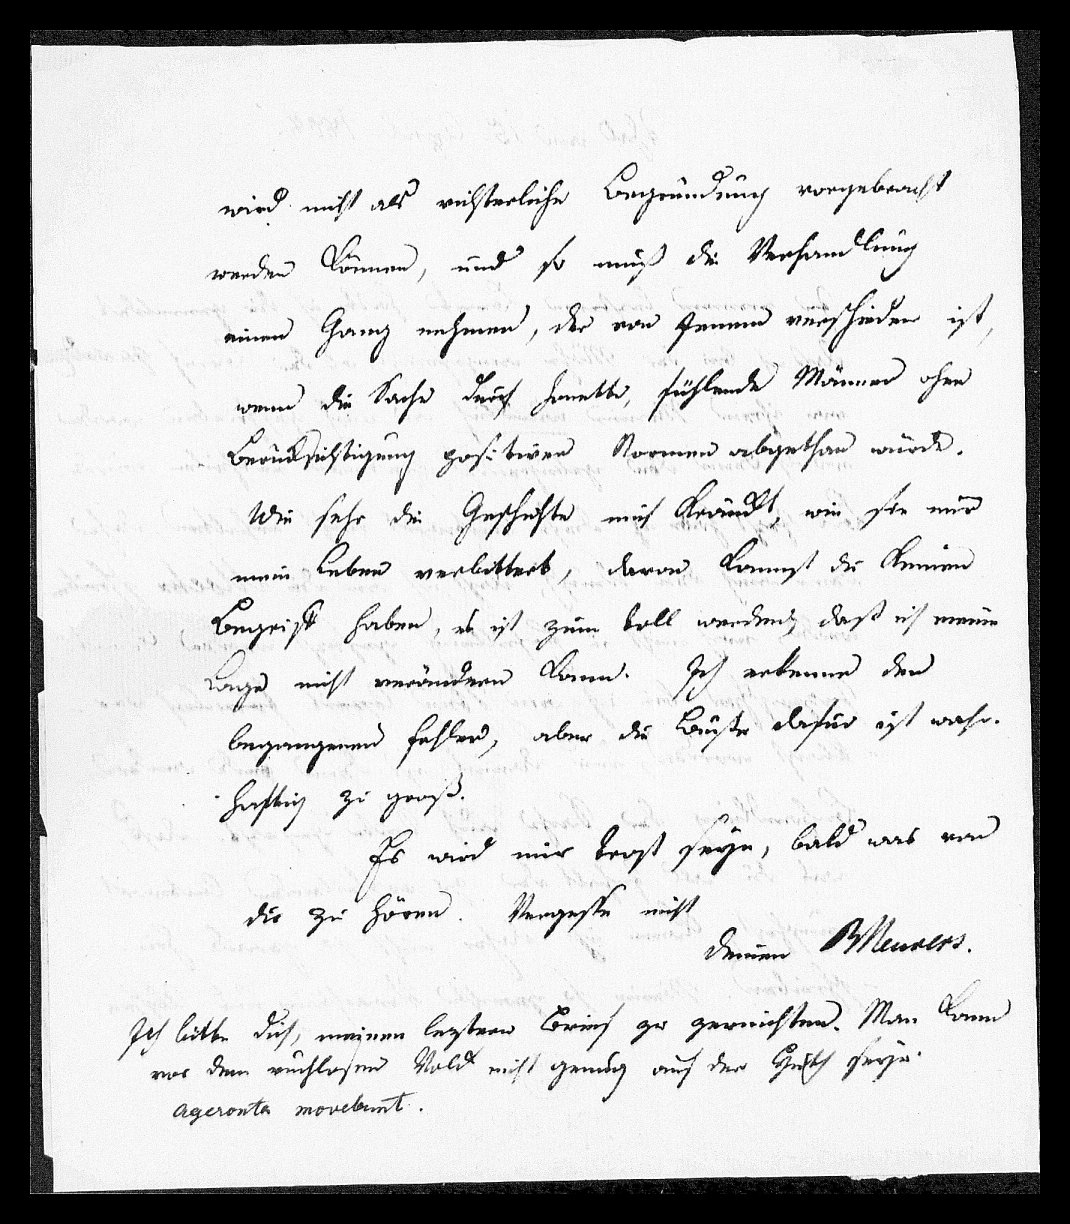 wird nicht als richterliche Begründung vorgebracht
werden können, und so muß die Verhandlung
einen Gang nehmen, der von jenem verschieden ist,
wenn die Sache durch honette, fühlende Männer ohne
Berücksichtigung positiver Normen abgethan würde.
Wie sehr die Geschichte mich kränkt, wie sie mir
mein Leben verbittert, davon kannst du keinen
Begriff haben, es ist zum toll werden, daß ich meine
Lage nicht verändern kann. Ich erkenne den
begangenen Fehler, aber die Buße dafür ist wahr-
haftig zu groß.
Es wird mir Trost seyn, bald was von
dir zu hören. Vergesse nicht
deinen
Ich bitte dich, meinen letzten Brief zu vernichten. Man kann
vor dem ruchlosen Volk nicht genug auf der Huth seyn.
Ageronta movebunt.